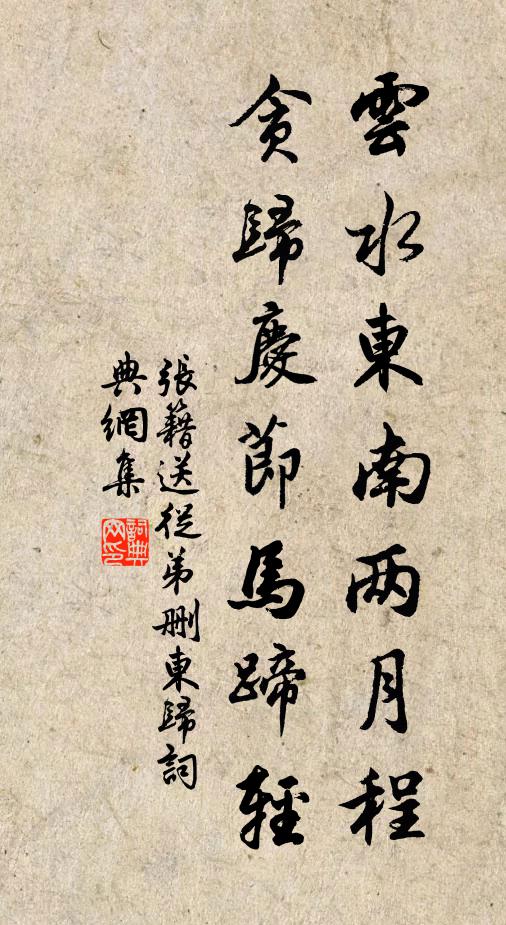 雲水東南两月程
貪歸慶節馬蹄輕
張籍送從弟刪東歸詞
典網集
詞典網印